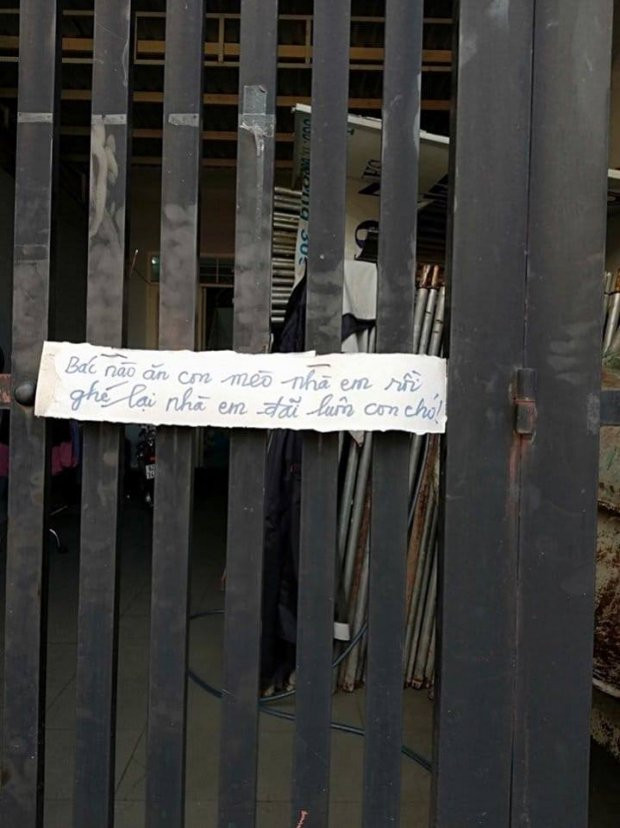 Bác nào ăn con mèo nhà em rồi
ghé lại nhà em đãi luôn con chó!